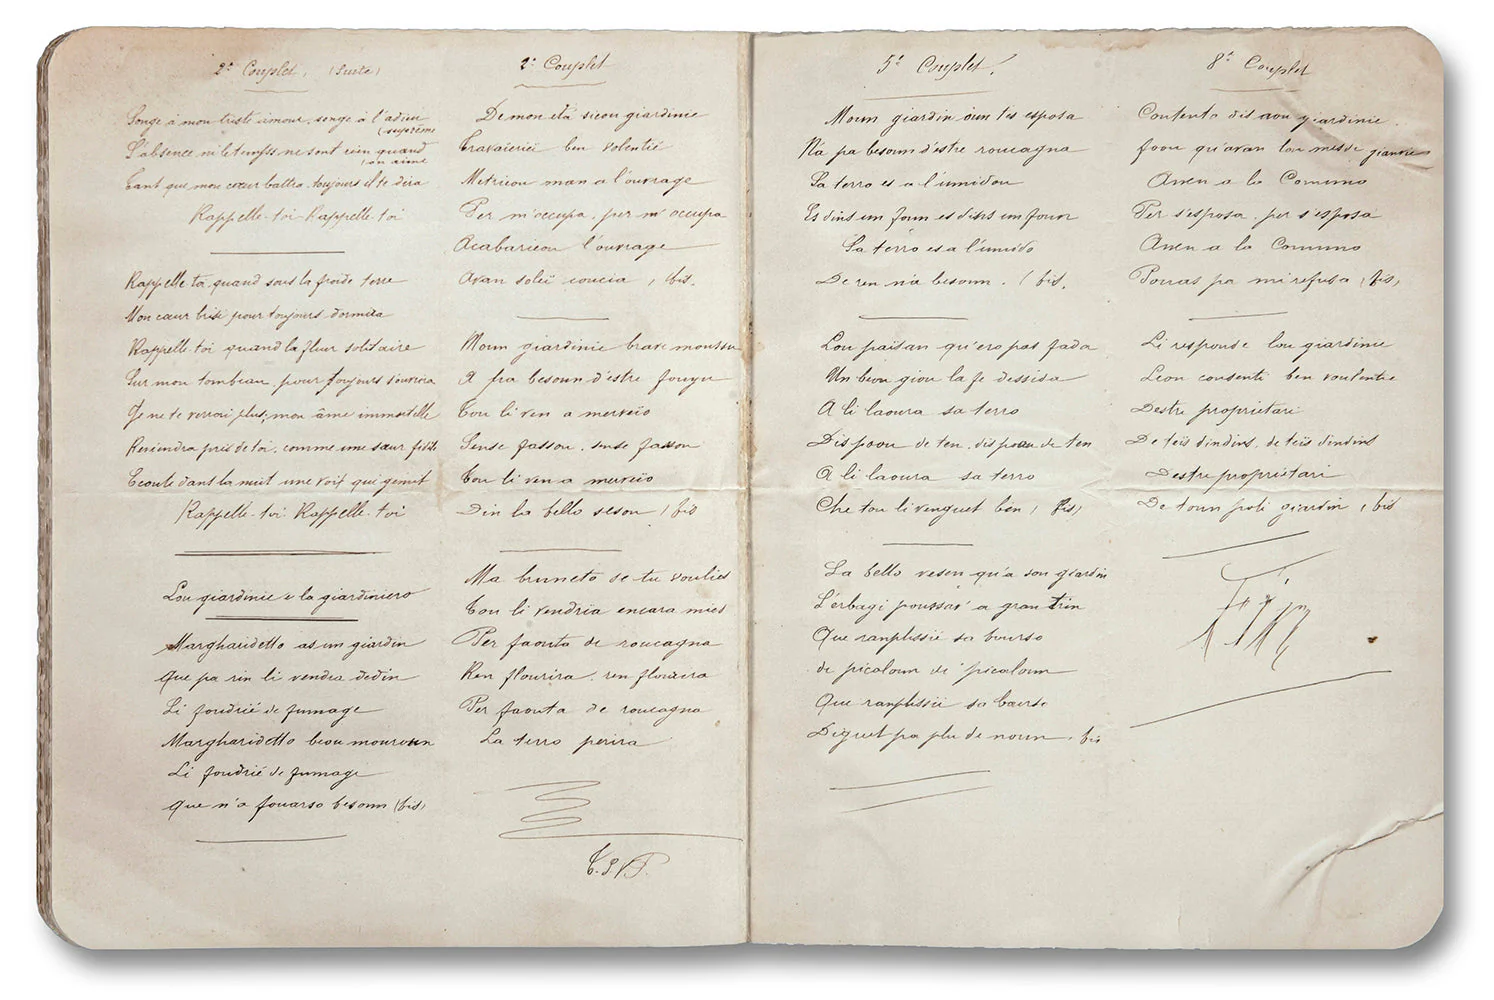 2e Couplet. (Suite)
Songe à mon triste amour, songe à l'adieu
(suprême
L'absence ni le temps ne sont rien quand
(on aime
Tant que mon cœur battra toujours il te dira
Rappelle-toi Rappelle-toi
Rappelle toi quand sous la froide terre
Mon cœur brisé pour toujours dormira
Rappelle-toi quand la fleur solitaire
Sur mon tombeau pour toujours s'ouvrira
Je ne te verrai plus, mon âme immortelle
Reviendra près de toi, comme une sœur fidèle
Ecoute dans la nuit une voix qui gémit
Rappelle-toi Rappelle-toi
Lou giardinie e la giardiniero
Margharidetto as un giardin
Que pa rin li vendra dedin
Li foudrié de fumage
Margharidetto beou mouroun
Li foudrié de fumage
Que n'a fouarso besoun (bis)
2e Couplet
De moun eta sieou giardinie
Travaierieï ben volentié
Metrieou man a l'ouvrage
Per m'occupa, per m'occupa
Acabarieou l'ouvrage
Avan soleü coucia (bis.
Moun giardinie brave moussu
A pa besoun d'estre fouyu
Tou li ven a merveïo
Sense fassou, sense fassou
Tou li ven a merveïo
Din la bello sesou (bis
Ma bruneto se tu voulies
Tou li vendria encara mies
Per faouta de roucagna
Ren flourira, ren flourira
Per faouta de roucagna
La terro perira
T.S.V.P.
5e Couplet.
Moun giardin oun tes esposa
N'a pa besoun d'estre roucagna
La terro es a l'umidou
Es dins un foun es dins un foun
La terro es a l'umido
De ren n'a besoun. (bis.
Lou païsan qu'ero pas fada
Un beou giou la fe dessida
A li laoura sa terro
Dis poou de ten, dis poou de ten
A li laoura sa terro
Che tou li venguet ben (Bis)
La bello vesen qu'a son giardin
L'erbagi poussav' a gran trin
Que ranplissie sa bourso
de picaloun de picaloun
Que ranplissié sa bourso
Diguet pa plu de noun. bis
8e Couplet
Contento dis aou giardinie
foou qu'avan lou messe gianvie
Anen a la Coumuno
Per s'esposa, per s'esposa
Anen a la Coumuno
Pourras pa mi refusa (bis)
Li responde lou giardinie
Leou consenti ben voulentie
Destre proprietari
De teïs dindins, de teïs dindins
Destre proprietari
De toun poli giardin (bis
Fin